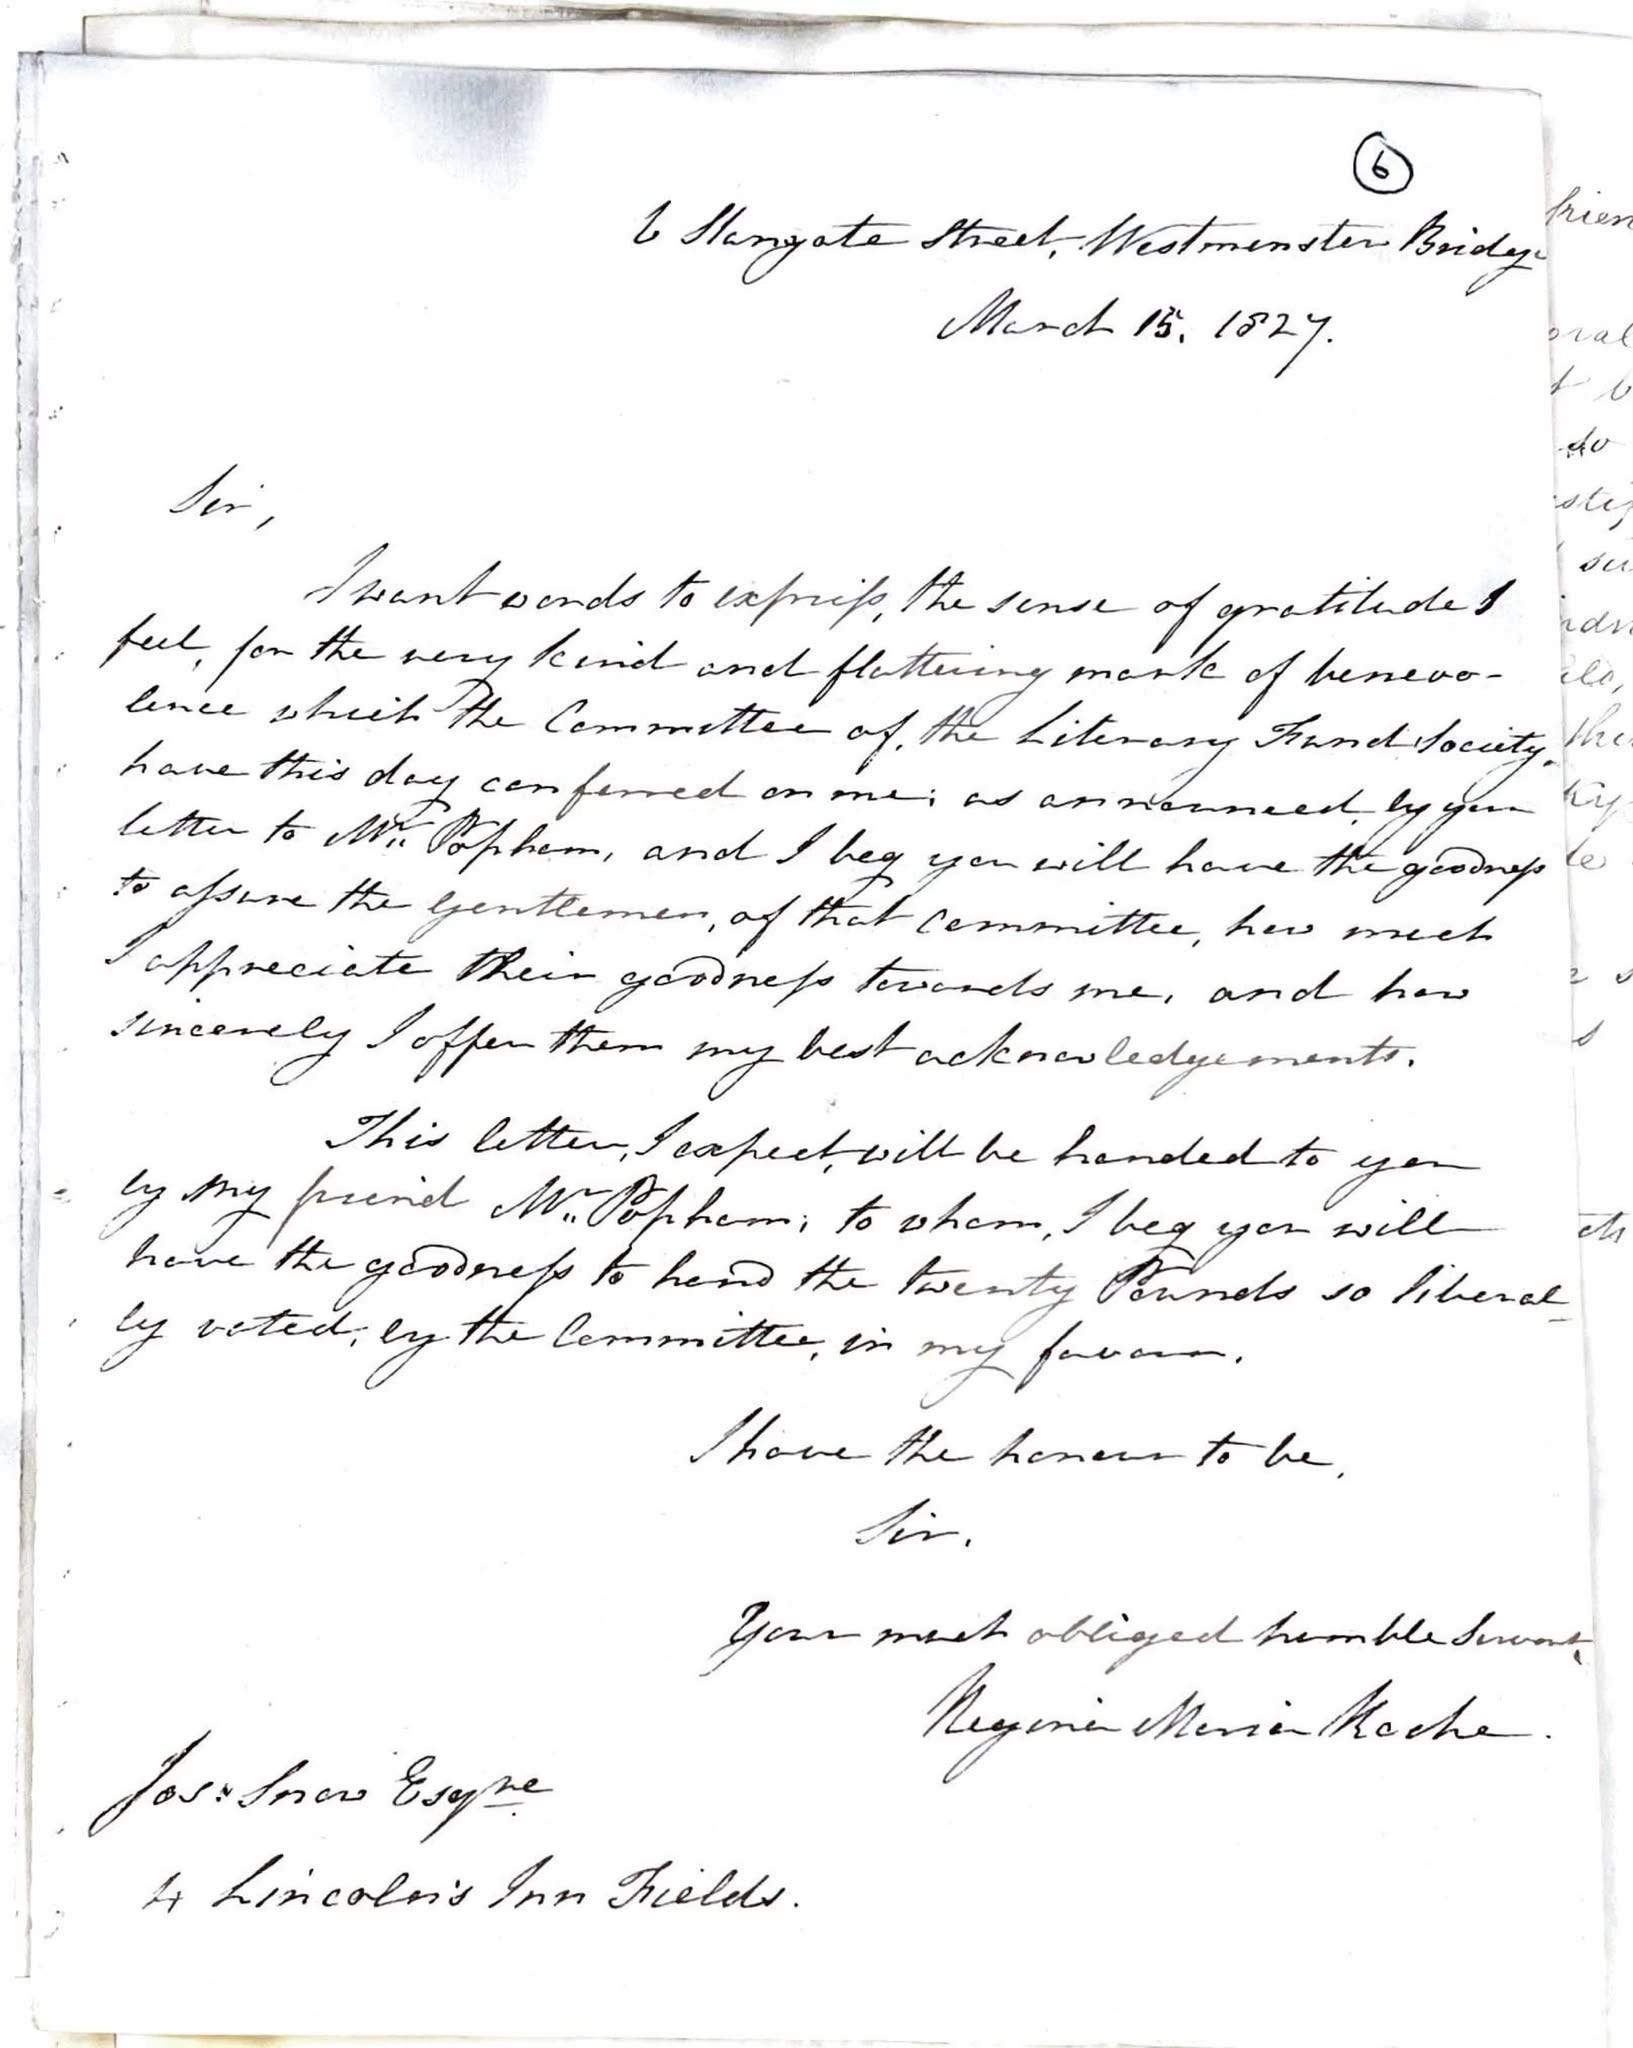 6
6 Stangate Street, Westminster Bridge
March 15. 1827.
Sir,
I want words to express, the sense of gratitude I
feel, for the very kind and flattering mark of benevo-
lence which the Committee of, the Literary Fund Society,
have this day conferred on me; as announced, by your
letter to Mr. Popham, and I beg you will have the goodness
to assure the Gentlemen, of that Committee, how much
I appreciate their goodness towards me, and how
sincerely I offer them my best acknowledgements.
This letter, I expect, will be handed to you
by my friend Mr. Popham; to whom, I beg you will
have the goodness to hand the twenty Pounds so liberal-
ly voted, by the Committee, in my favour.
I have the honour to be,
Sir,
Your much obliged humble Servant,
Regina Maria Roche.
Jos: Snow Esqre
4 Lincoln's Inn Fields.